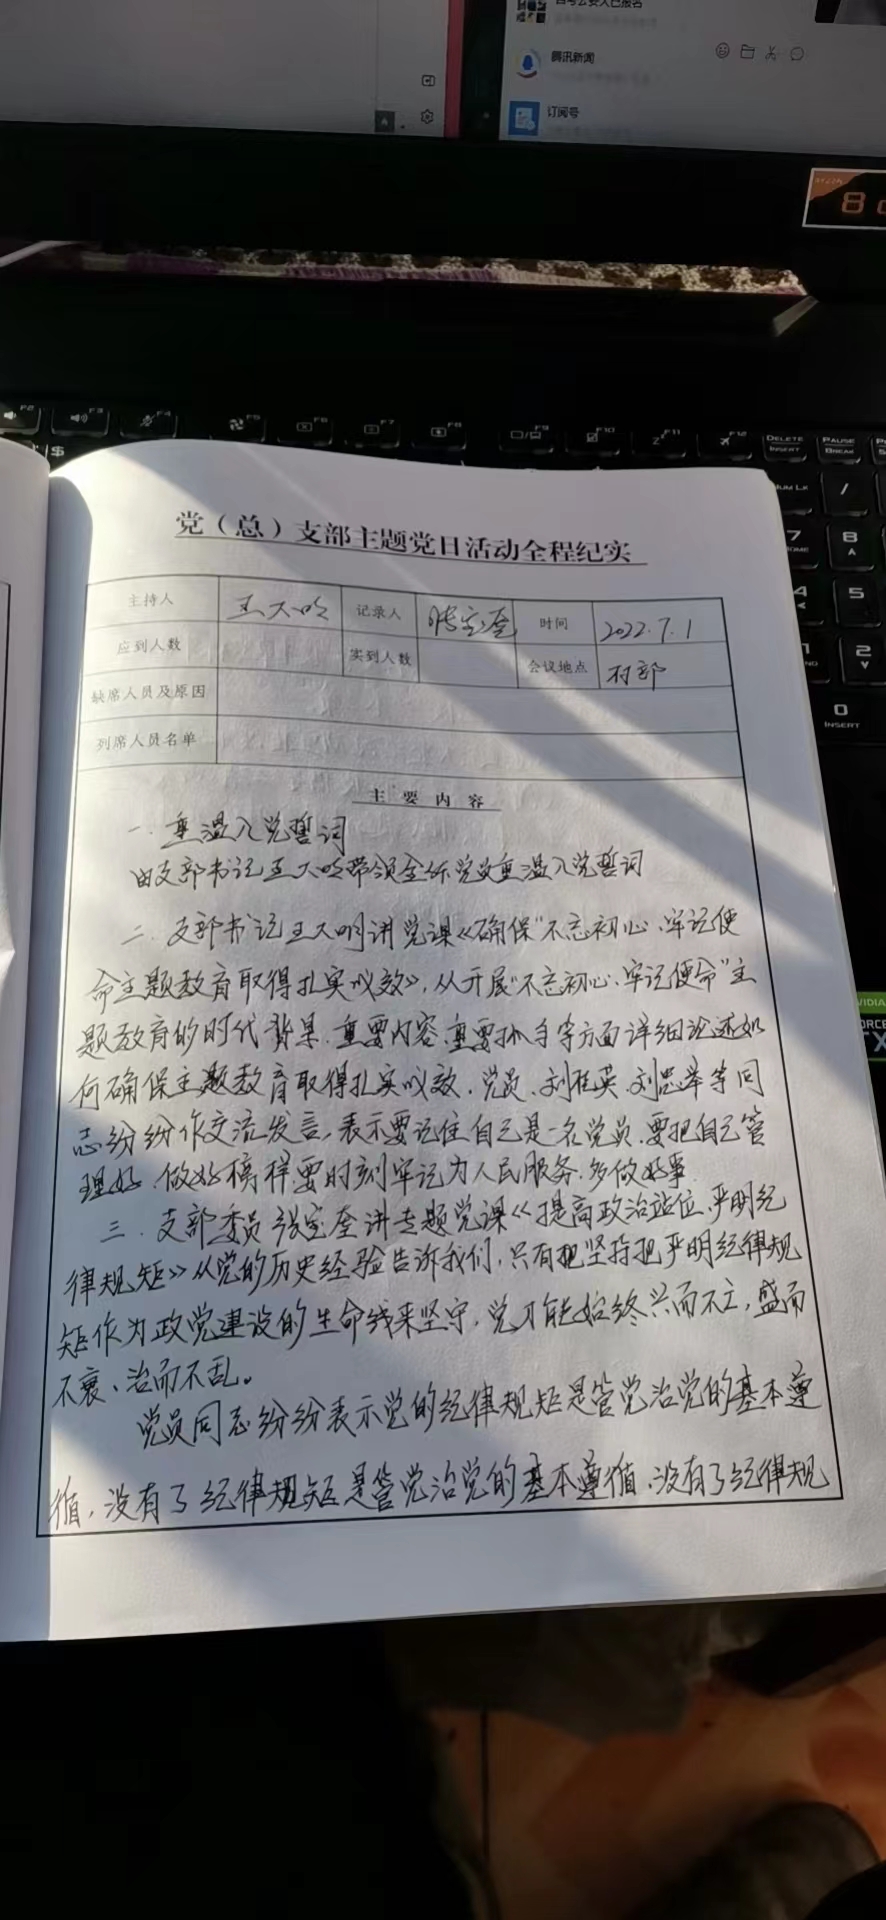 腾讯新闻
订阅号
F2
F3
F4
F5
F6
F7
F8
F9
F10
F11
F12
DELETE
INSERT
PAUSE
BREAK
$
/
7
8
4
5
2
0
INSERT
党（总）支部主题党日活动全程纪实
主持人 王大明 记录人 张宝奎 时间 2022.7.1
应到人数 实到人数 会议地点 村部
缺席人员及原因
列席人员名单
主要内容
一.重温入党誓词
由支部书记王大明带领全体党员重温入党誓词
二.支部书记王大明讲党课《确保“不忘初心、牢记使
命主题教育取得扎实成效》，从开展“不忘初心、牢记使命”主
题教育的时代背景.重要内容.重要抓手等方面详细论述如
何确保主题教育取得扎实成效.党员.刘桂英.刘忠举等同
志纷纷作交流发言，表示要记住自己是一名党员.要把自己管
理好.做好榜样.要时刻牢记为人民服务.多做好事
三.支部委员张宝奎讲专题党课《提高政治站位.严明纪
律规矩》从党的历史经验告诉我们，只有把坚持把严明纪律规
矩作为政党建设的生命线来坚守，党才能始终兴而不亡，盛而
不衰、治而不乱。
党员同志纷纷表示党的纪律规矩是管党治党的基本遵
循，没有了纪律规矩是管党治党的基本遵循.没有了纪律规